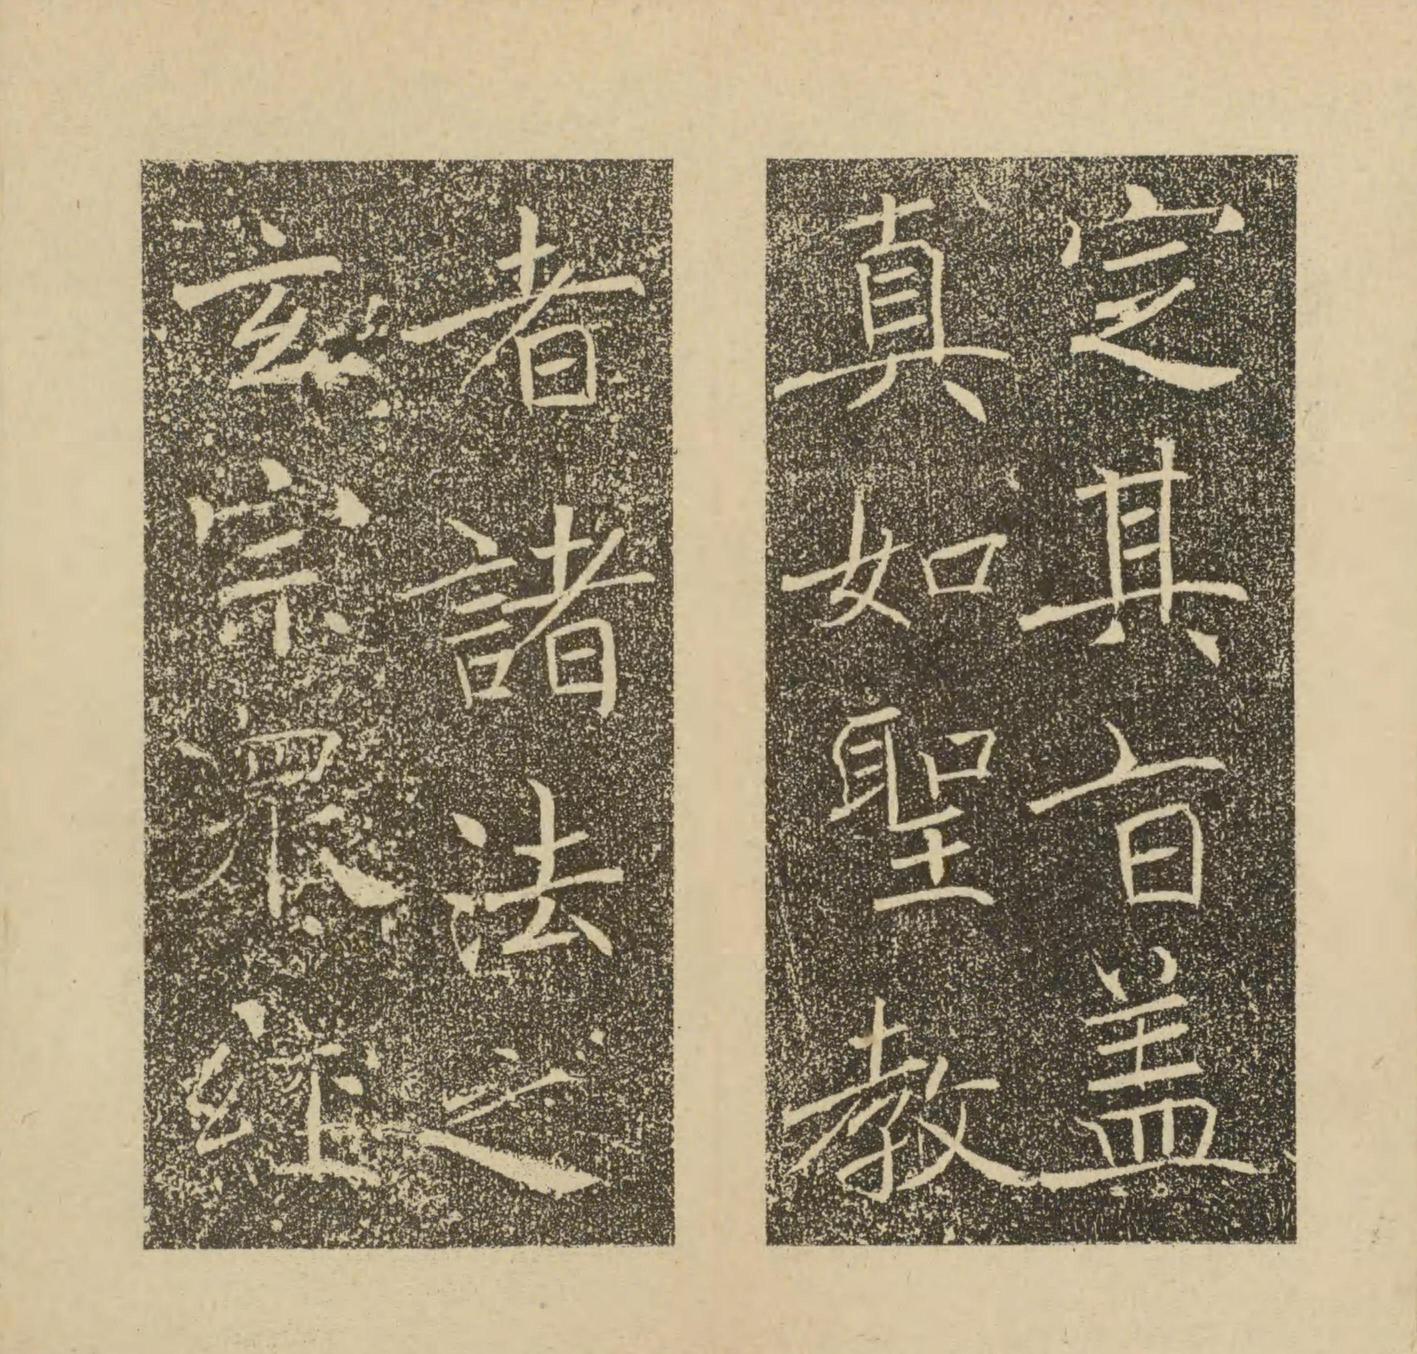 定其旨盖
真如聖教
者諸法之
玄宗眾經